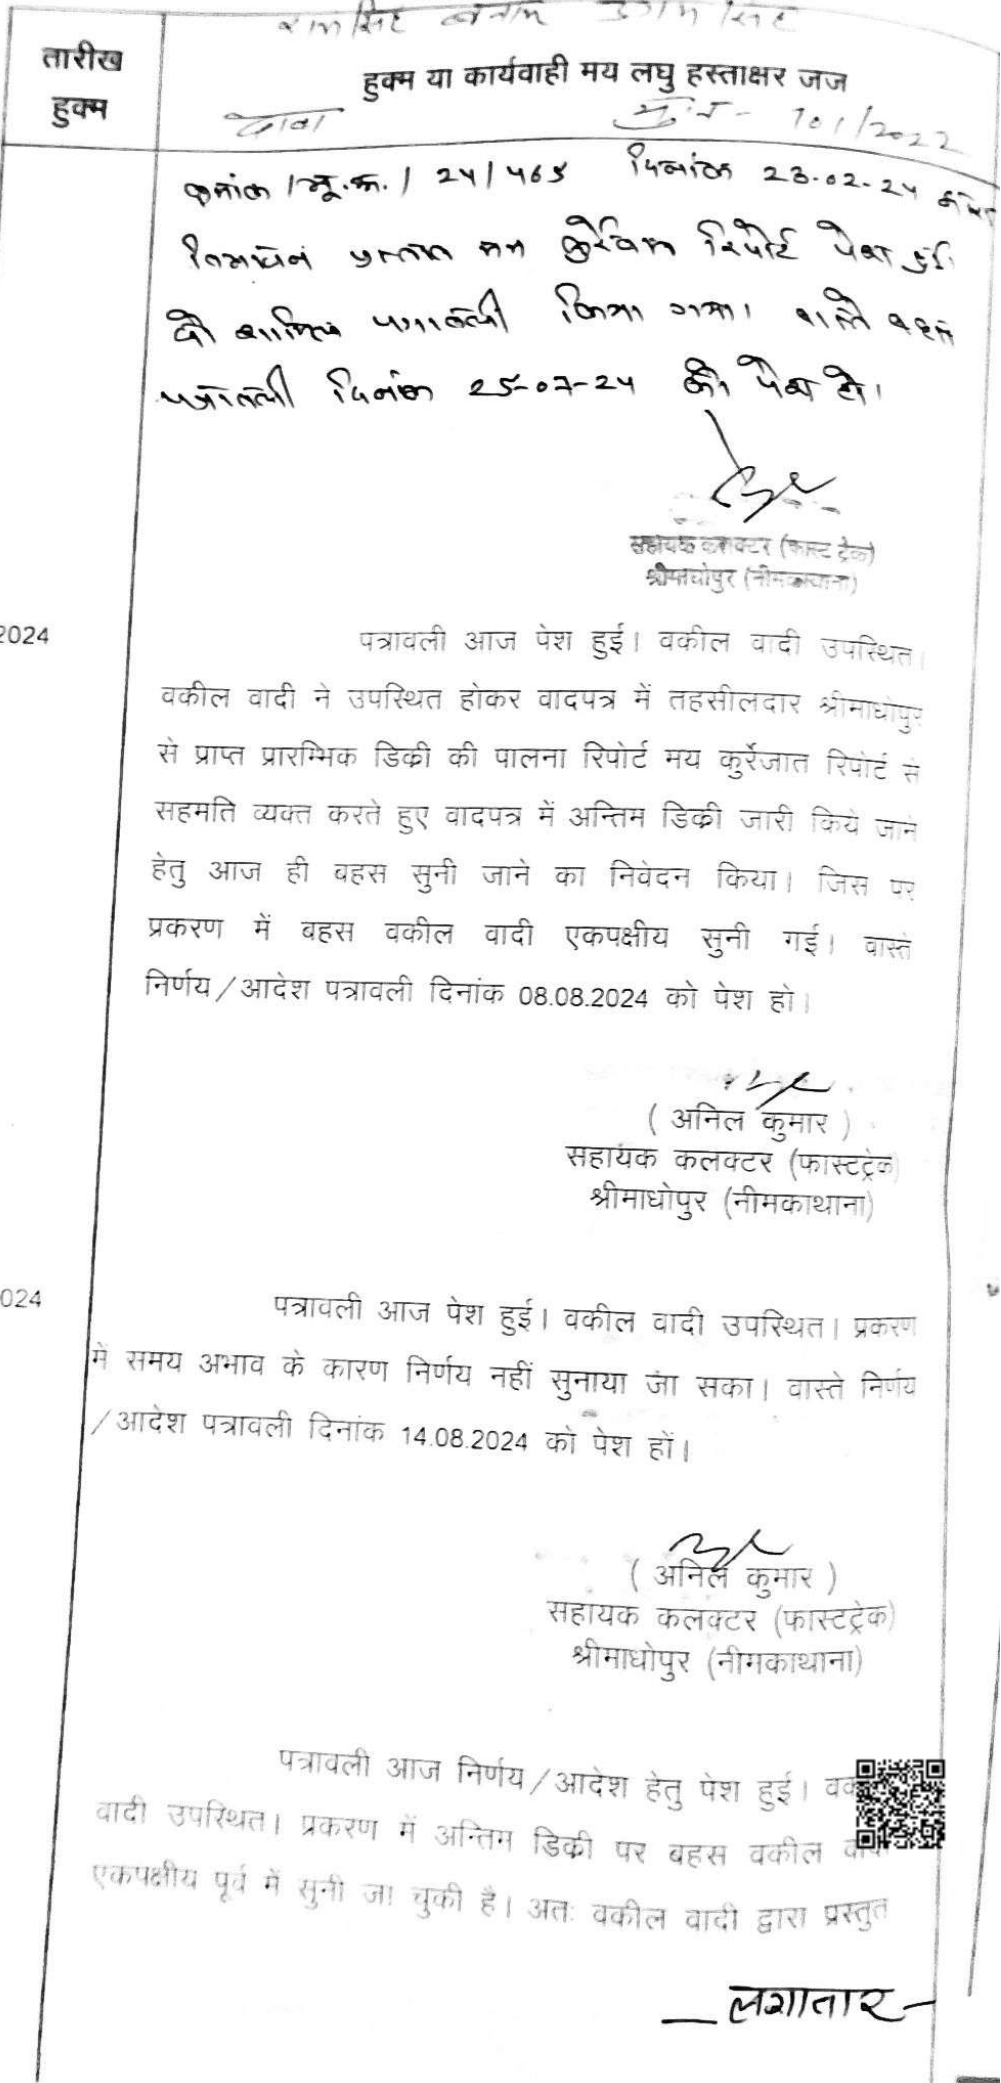 रामसिंह बनाम
तारीख हुक्म
हुक्म या कार्यवाही मय लघु हस्ताक्षर जज
दावा मु.न - 101/2022
क्रमांक /भू.अ./ 24/465 दिनांक 23-02-24
रिपोर्ट पेश हुई।
किया गया। वास्ते बहस
पत्रावली दिनांक 25-07-24 को पेश हो।
सहायक कलक्टर (फास्ट ट्रेक)
श्रीमाधोपुर (नीमकाथाना)
2024
पत्रावली आज पेश हुई। वकील वादी उपस्थित।
वकील वादी ने उपस्थित होकर वादपत्र में तहसीलदार श्रीमाधोपुर
से प्राप्त प्रारम्भिक डिक्री की पालना रिपोर्ट मय कुर्रेजात रिपोर्ट से
सहमति व्यक्त करते हुए वादपत्र में अन्तिम डिक्री जारी किये जाने
हेतु आज ही बहस सुनी जाने का निवेदन किया। जिस पर
प्रकरण में बहस वकील वादी एकपक्षीय सुनी गई। वास्ते
निर्णय/आदेश पत्रावली दिनांक 08.08.2024 को पेश हो।
( अनिल कुमार )
सहायक कलक्टर (फास्टट्रेक)
श्रीमाधोपुर (नीमकाथाना)
024
पत्रावली आज पेश हुई। वकील वादी उपस्थित। प्रकरण
में समय अभाव के कारण निर्णय नहीं सुनाया जा सका। वास्ते निर्णय
/आदेश पत्रावली दिनांक 14.08.2024 को पेश हों।
( अनिल कुमार )
सहायक कलक्टर (फास्टट्रेक)
श्रीमाधोपुर (नीमकाथाना)
पत्रावली आज निर्णय/आदेश हेतु पेश हुई।
वादी उपस्थित। प्रकरण में अन्तिम डिक्री पर बहस वकील
एकपक्षीय पूर्व में सुनी जा चुकी है। अतः वकील वादी द्वारा प्रस्तुत
लगातार